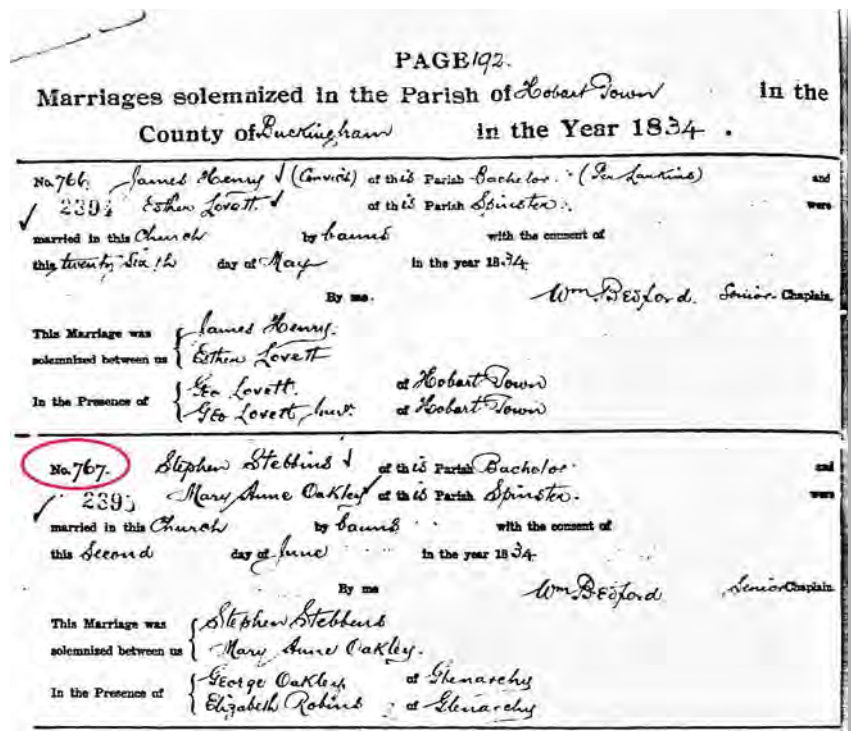 PAGE 192.
Marriages solemnized in the Parish of Hobart Town in the
County of Buckingham in the Year 1834.
No. 766. James Henry (Convict) of this Parish Bachelor. (Per Larkins) and
2394 Esther Lovett of this Parish Spinster. were
married in this Church by banns with the consent of
this twenty Sixth day of May in the year 1834
By me. Wm Bedford. Senior Chaplain.
This Marriage was James Henry.
solemnized between us Esther Lovett
In the Presence of Geo Lovett. of Hobart Town
Geo Lovett, Junr. of Hobart Town
No. 767. Stephen Stebbins of this Parish Bachelor and
2395 Mary Anne Oakley of this Parish Spinster. were
married in this Church by banns with the consent of
this Second day of June in the year 1834
By me Wm Bedford Senior Chaplain
This Marriage was Stephen Stebbens
solemnized between us Mary Anne Oakley.
In the Presence of George Oakley of Glenarchy
Elizabeth Robins of Glenarchy